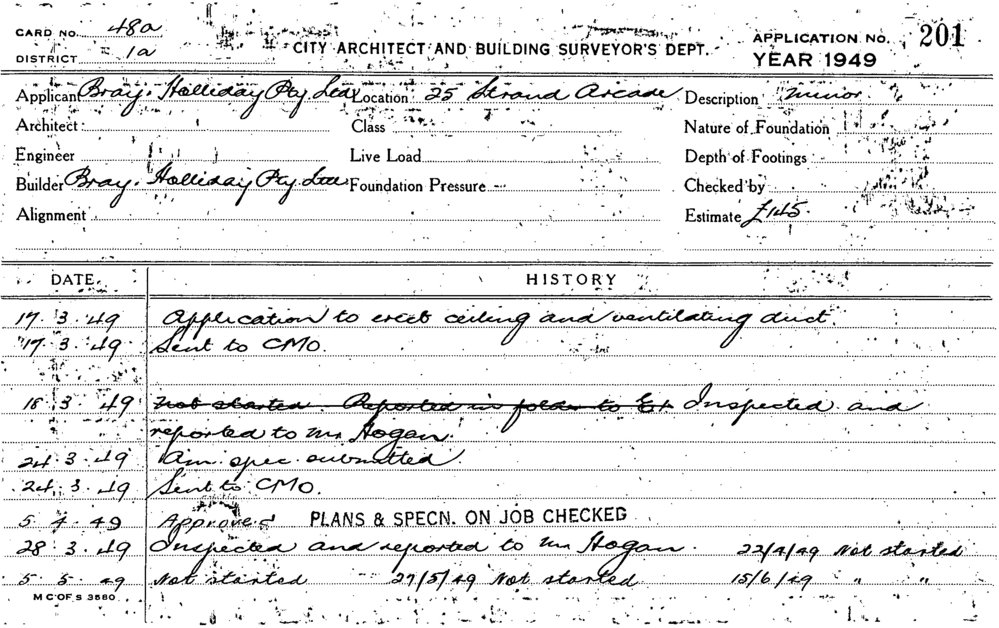 CARD NO. 48a
DISTRICT 1a
CITY ARCHITECT AND BUILDING SURVEYOR'S DEPT.
APPLICATION NO. 201
YEAR 1949
Applicant Bray. Holliday Pty Ltd Location 25 Strand Arcade Description Minor
Architect Class Nature of Foundation
Engineer Live Load Depth of Footings
Builder Bray. Holliday Pty. Ltd Foundation Pressure Checked by
Alignment Estimate £145.
DATE. HISTORY
17. 3. 49 Application to erect ceiling and ventilating duct.
17. 3. 49 Sent to CMO.
18. 3. 49 Not started. Reported in folder to Ex. Inspected and
reported to Mr Hogan.
24. 3. 49 Am. spec. submitted.
24. 3. 49 Sent to CMO.
5 4. 49 Approved PLANS & SPECN. ON JOB CHECKED
28. 3. 49 Inspected and reported to Mr Hogan. 22/4/49 Not started
5 5 49 Not started 27/5/49 Not started 15/6/49 " "
M C OF S 3580